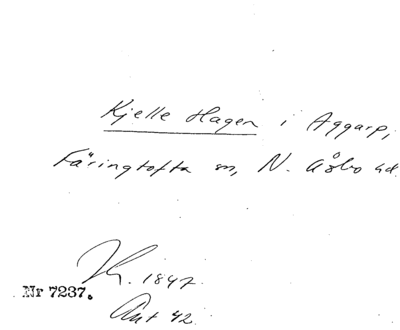 Kjelle Hagen i Aggarp,
Färingtofta sn, N. Åsbo hd.
K. 1847.
Nr 7237.
Ant 42